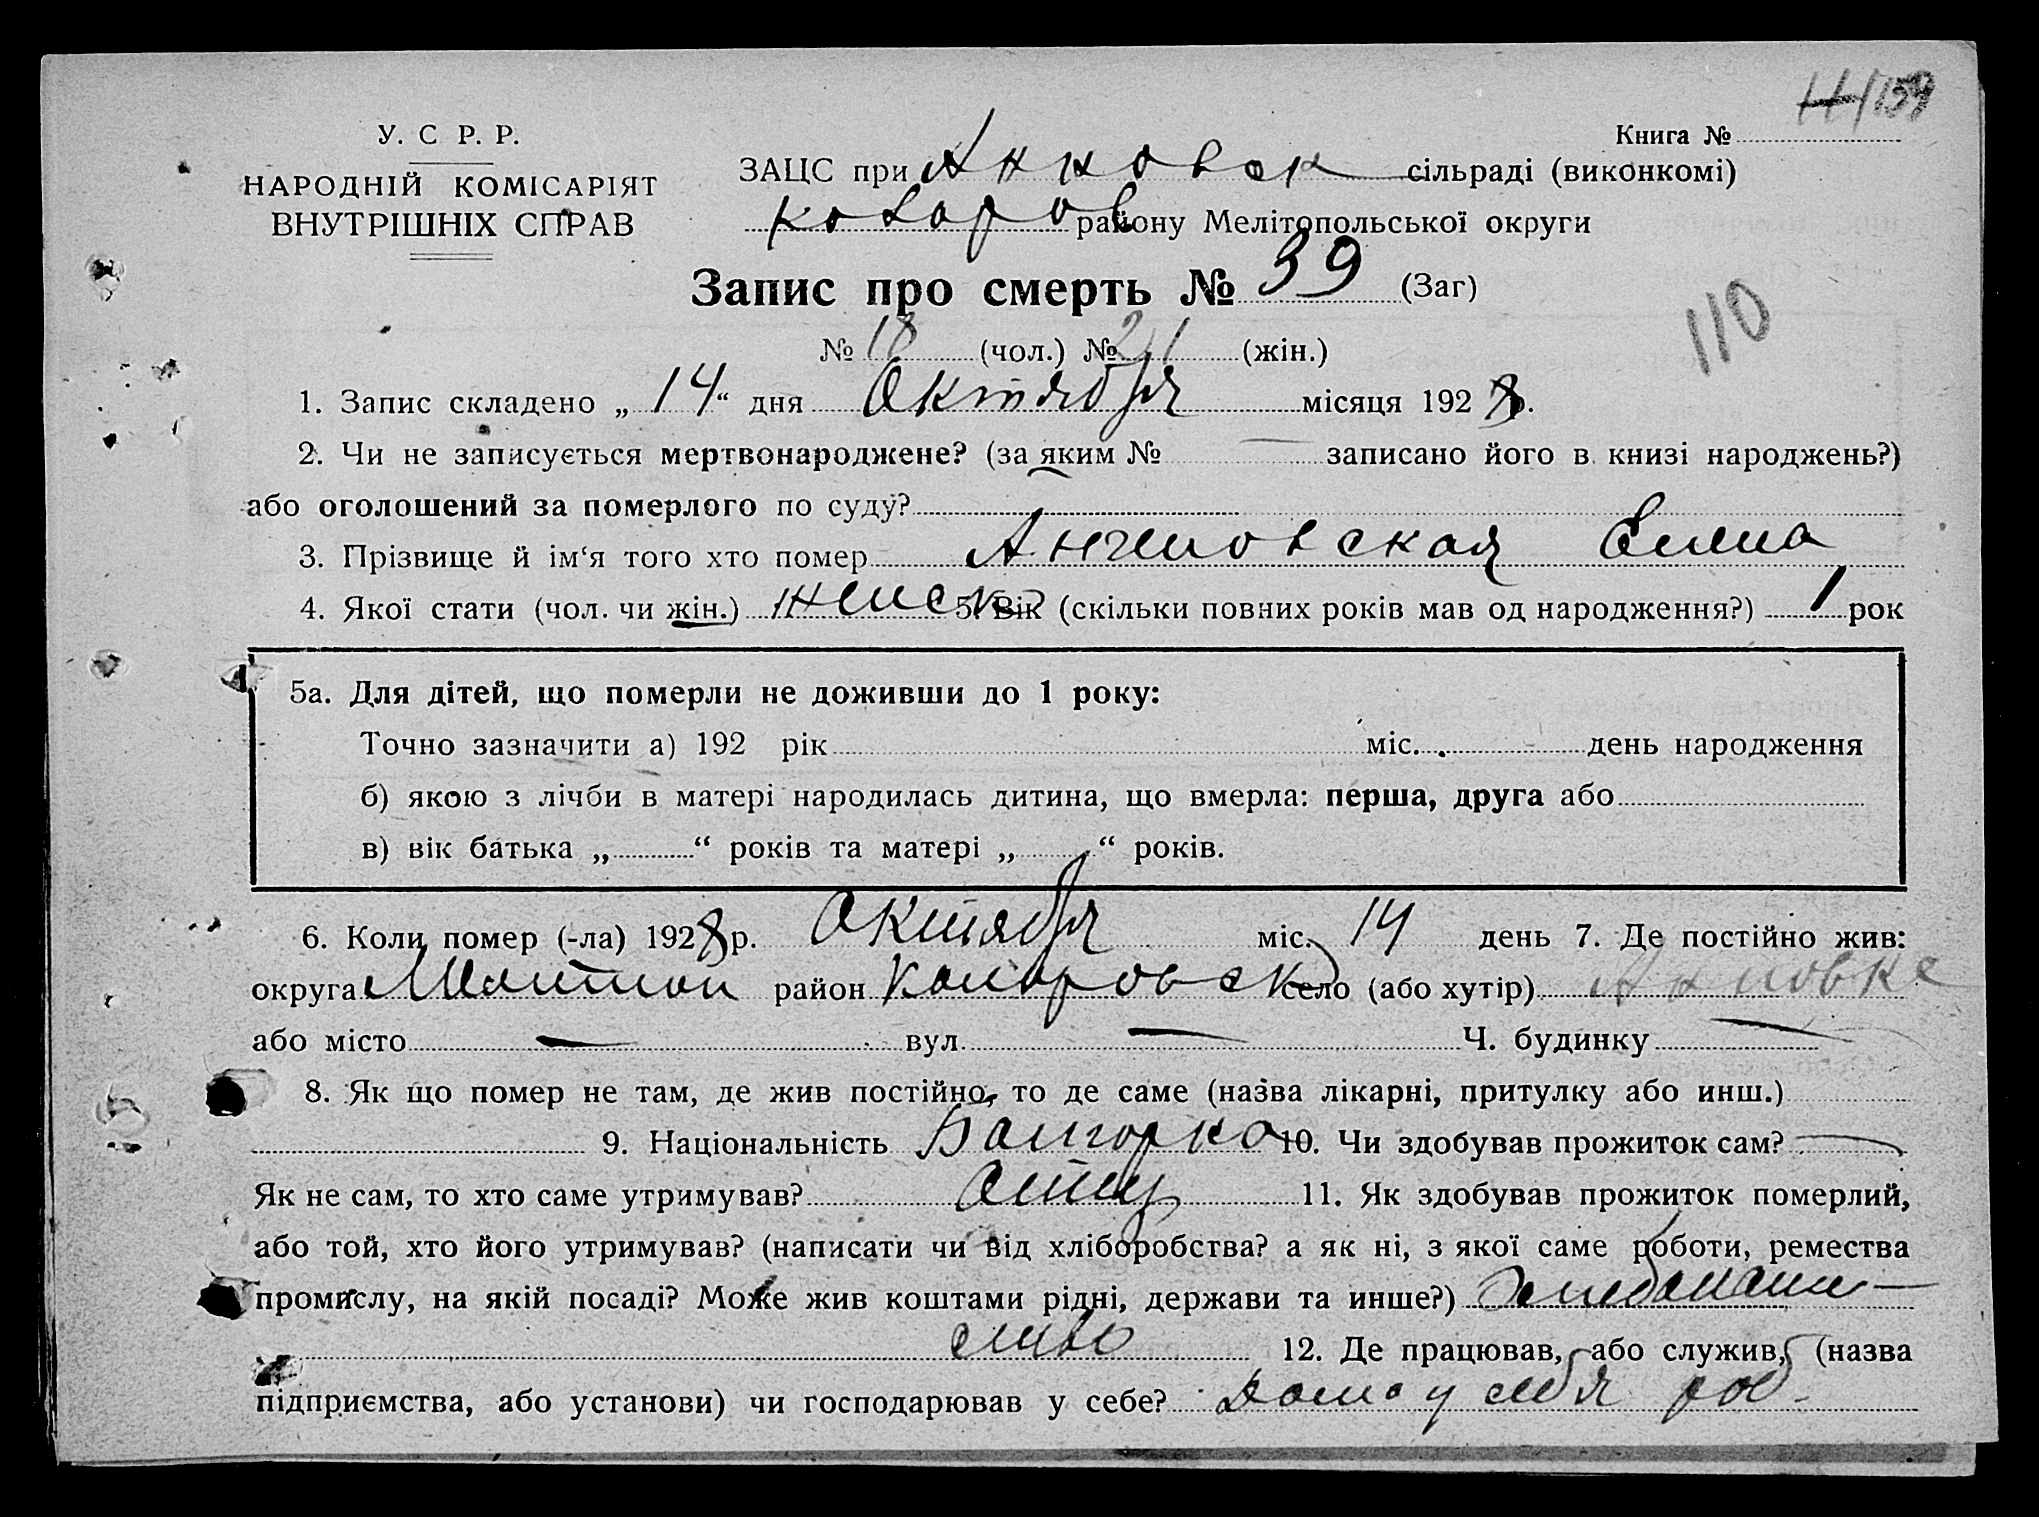 Книга №
У. С. Р. Р.
НАРОДНІЙ КОМІСАРІЯТ
ВНУТРІШНІХ СПРАВ
ЗАЦС при Анновск сільраді (виконкомі)
району Мелітопольської округи
Запис про смерть № 39 (Заг)
110
№ 18 (чол.) № 21 (жін.)
1. Запис складено „ 14 “ дня Октября місяця 1928 р.
2. Чи не записується мертвонароджене? (за яким № записано його в книзі народжень?)
або оголошений за померлого по суду?
3. Прізвище й ім‘я того хто помер
4. Якої стати (чол. чи жін.) женск 5. Вік (скільки повних років мав од народження?) 1 рок
5а. Для дітей, що померли не доживши до 1 року:
Точно зазначити а) 192 рік міс. день народження
б) якою з лічби в матері народилась дитина, що вмерла: перша, друга або
в) вік батька „ “ років та матері „ “ років.
6. Коли помер (-ла) 1928 р. Октября міс. 14 день 7. Де постійно жив:
округа Мелитоп район Коларовск село (або хутір) Анновке
або місто — вул. — Ч. будинку —
8. Як що помер не там, де жив постійно, то де саме (назва лікарні, притулку або инш.)
9. Національність Болгорка 10. Чи здобував прожиток сам? —
Як не сам, то хто саме утримував? отец 11. Як здобував прожиток померлий,
або той, хто його утримував? (написати чи від хліборобства? а як ні, з якої саме роботи, ремества
промислу, на якій посаді? Може жив коштами рідні, держави та инше?) Хлебопаше-
ство 12. Де працював, або служив, (назва
підприємства, або установи) чи господарював у себе? дома у себя роб.